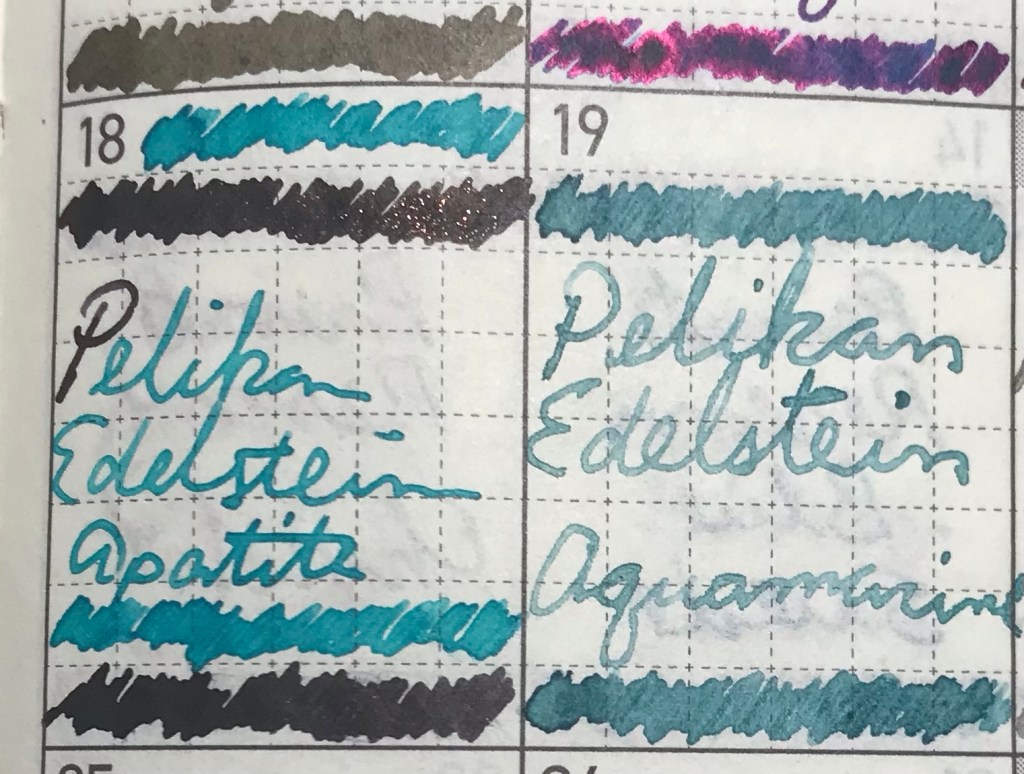 18
Pelikan
Edelstein
Apatite
19
Pelikan
Edelstein
Aquamarine